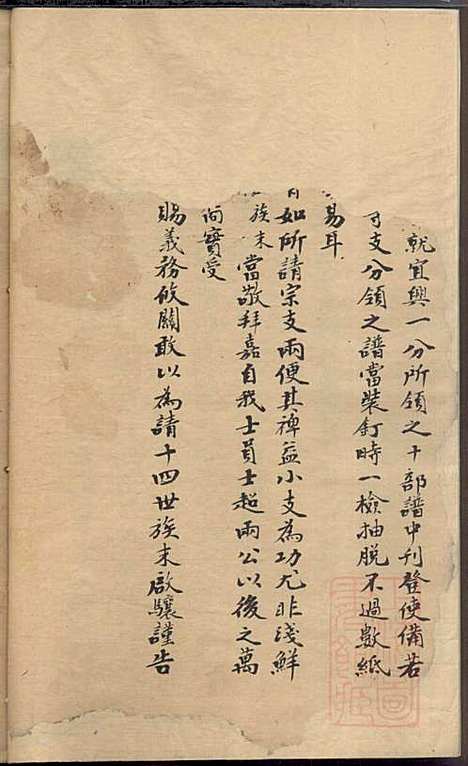 就宜興一分所領之十部譜中刊登使備若
支分領之譜當裝釘時一檢抽脫不過數紙
易耳
如所請宗支兩便其裨益小支為功尤非淺鮮
族末當敬拜嘉自我士員士超兩公以後之萬
尚實受
賜義務攸關敢以為請十四世族末啟驤謹告